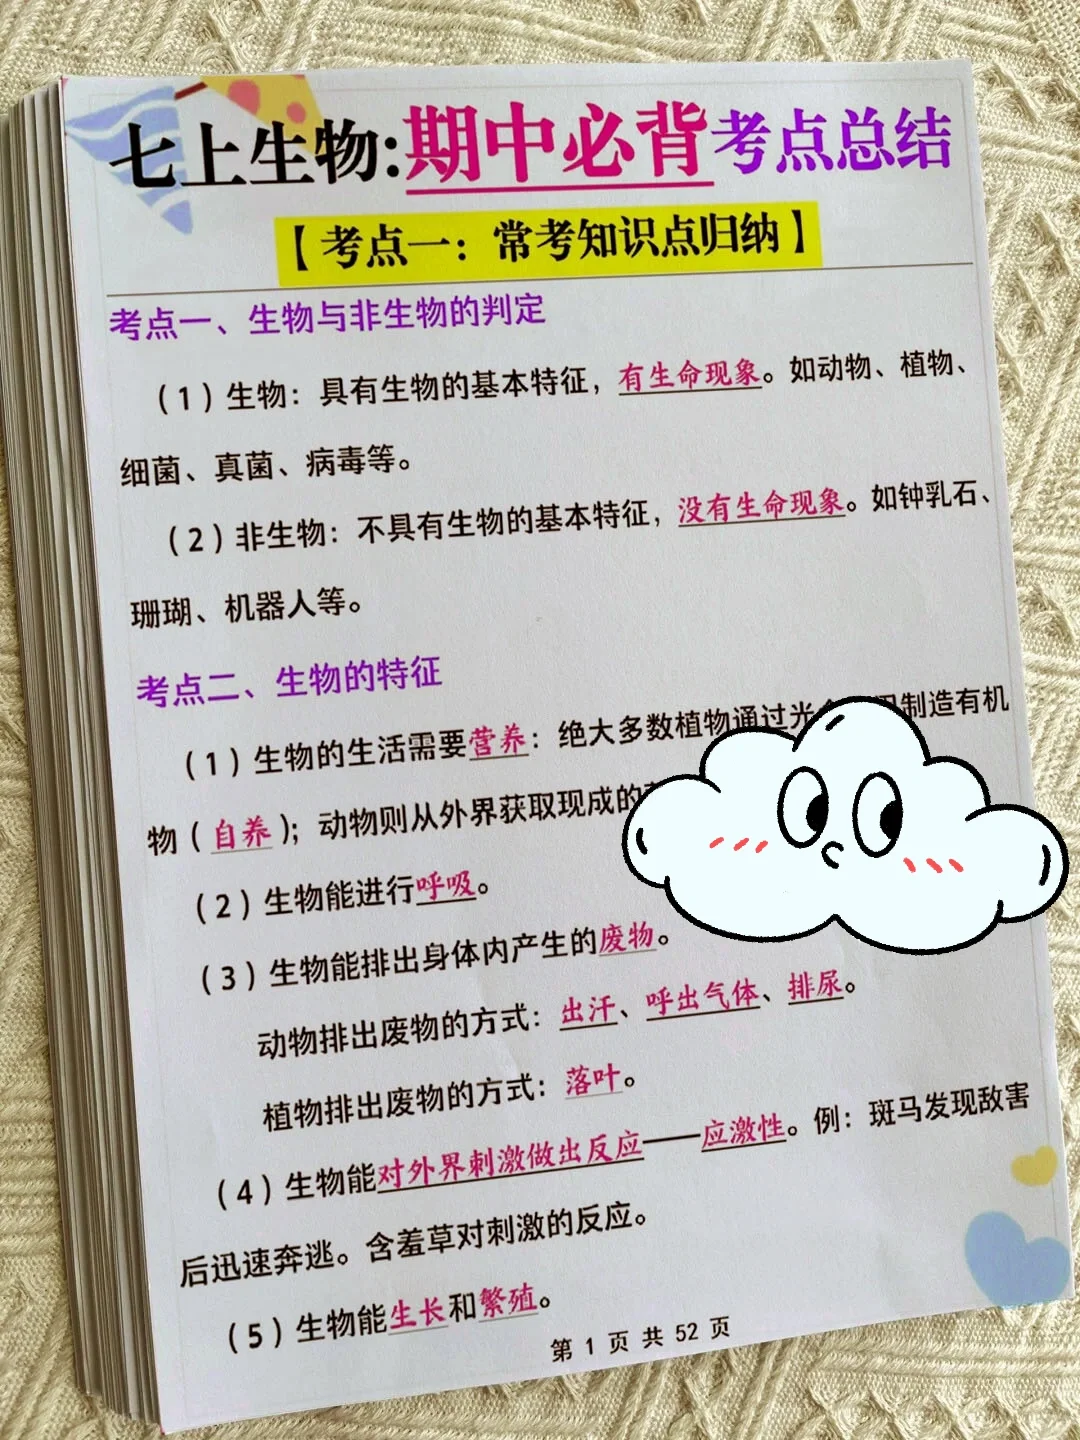 七上生物:期中必背考点总结
【考点一：常考知识点归纳】
考点一、生物与非生物的判定
（1）生物：具有生物的基本特征，有生命现象。如动物、植物、
细菌、真菌、病毒等。
（2）非生物：不具有生物的基本特征，没有生命现象。如钟乳石、
珊瑚、机器人等。
考点二、生物的特征
（1）生物的生活需要营养：绝大多数植物通过光制造有机
物（自养）；动物则从外界获取现成的
（2）生物能进行呼吸。
（3）生物能排出身体内产生的废物。
动物排出废物的方式：出汗、呼出气体、排尿。
植物排出废物的方式：落叶。
（4）生物能对外界刺激做出反应——应激性。例：斑马发现敌害
后迅速奔逃。含羞草对刺激的反应。
（5）生物能生长和繁殖。
第 1 页 共 52 页